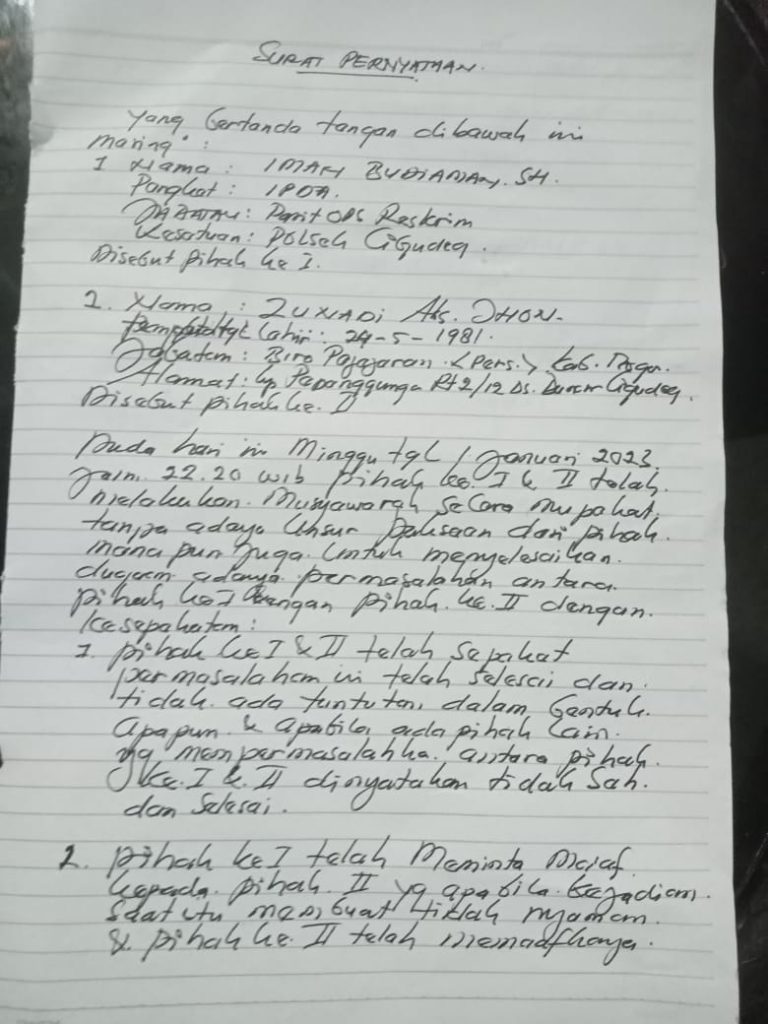 SURAT PERNYATAAN.
Yang bertanda tangan dibawah ini
masing":
1 Nama : IMAN BUDIAMAN. SH.
Pangkat : IPDA.
JABATAN : Panit OPS Reskrim
Kesatuan : POLSEK Cigudeg.
Disebut pihak ke I.
2. Nama : JUNADI Als. JHON.
tempat/tgl lahir : 24-5-1981.
Jabatan : Biro Pajajaran. <Pers.> Kab. Bogor.
Alamat : kp Papanggungan Rt 2/12 Ds. Cigudeg.
Disebut pihak ke. II
Pada hari ini Minggu tgl 1 Januari 2023.
Jam. 22.20 wib pihak ke. I & II telah.
melakukan. Musyawarah secara mupakat.
tanpa adaya unsur paksaan dari pihak.
mana pun juga. untuk menyelesaikan.
dugaan adanya permasalahan antara.
pihak ke I dengan pihak. ke. II dengan.
kesepakatan :
1. pihak ke I & II telah sepakat
permasalahan ini telah selesai dan.
tidak. ada tuntutan, dalam bentuk.
apapun. & apabila, ada pihak lain.
yg mempermasalahka. antara pihak.
ke. I & II dinyatakan tidak sah.
dan selesai.
2. pihak ke I telah Meminta Maaf.
kepada. pihak. II yg apabila. kejadian.
saat itu membuat tidak nyaman.
& pihak ke. II telah memaafkanya.